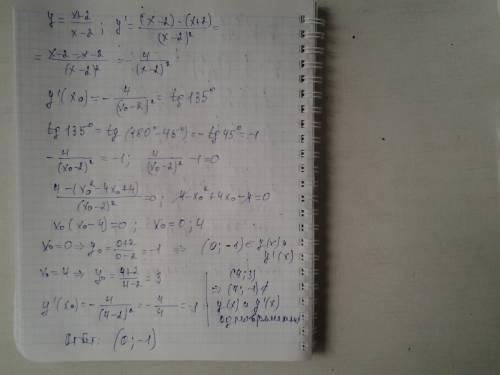 y = x+2/x-2 ; y' = (x-2)-(x+2)/(x-2)² =
= x-2-x-2/(x-2)² = -4/(x-2)²
y'(x₀) = -4/(x₀-2)² = tg 135°
tg 135° = tg (180°-45°) = -tg 45° = -1
-4/(x₀-2)² = -1 ; 4/(x₀-2)² - 1 = 0
4-(x₀²-4x₀+4)/(x₀-2)² = 0 ; 4-x₀²+4x₀-4=0
x₀(x₀-4)=0 ; x₀=0 ; 4
x₀=0 ⇒ y₀ = 0+2/0-2 = -1 ⇒ (0;-1) ∈ y(x) и y'(x)
x₀=4 ⇒ y₀ = 4+2/4-2 = 3
y'(x₀) = -4/(4-2)² = -4/4 = -1
(4;3)
⇒ (4;-1) ∉
y(x) и y'(x)
одновременно
Ответ: (0;-1)